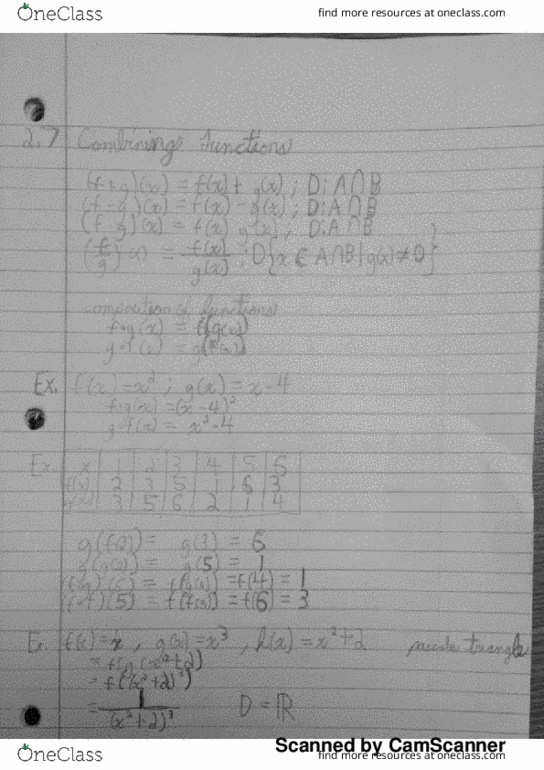 OneClass find more resources at oneclass.com
2.7 Combining Functions
(f+g)(x) = f(x) + g(x) ; D: A∩B
(f-g)(x) = f(x) - g(x) ; D: A∩B
(f g)(x) = f(x) g(x) ; D: A∩B
(f/g)(x) = f(x)/g(x) ; D{x ∈ A∩B | g(x) ≠ 0}
composition of functions
f∘g(x) = f(g(x))
g∘f(x) = g(f(x))
Ex. f(x) = x² ; g(x) = x-4
f∘g(x) = (x-4)²
g∘f(x) = x²-4
Ex. x 1 2 3 4 5 6
f(x) 2 3 5 1 6 3
g(x) 3 5 6 2 1 4
g(f(2)) = g(3) = 6
g(g(2)) = g(5) = 1
(f∘g)(6) = f(g(6)) = f(4) = 1
(f∘f)(5) = f(f(5)) = f(6) = 3
Ex. , g(x) = x³ , h(x) = x²+2 triangle
= f(g(x²+2))
= f((x²+2)³)
= 1/(x²+2)³ D = ℝ
Scanned by CamScanner
OneClass find more resources at oneclass.com